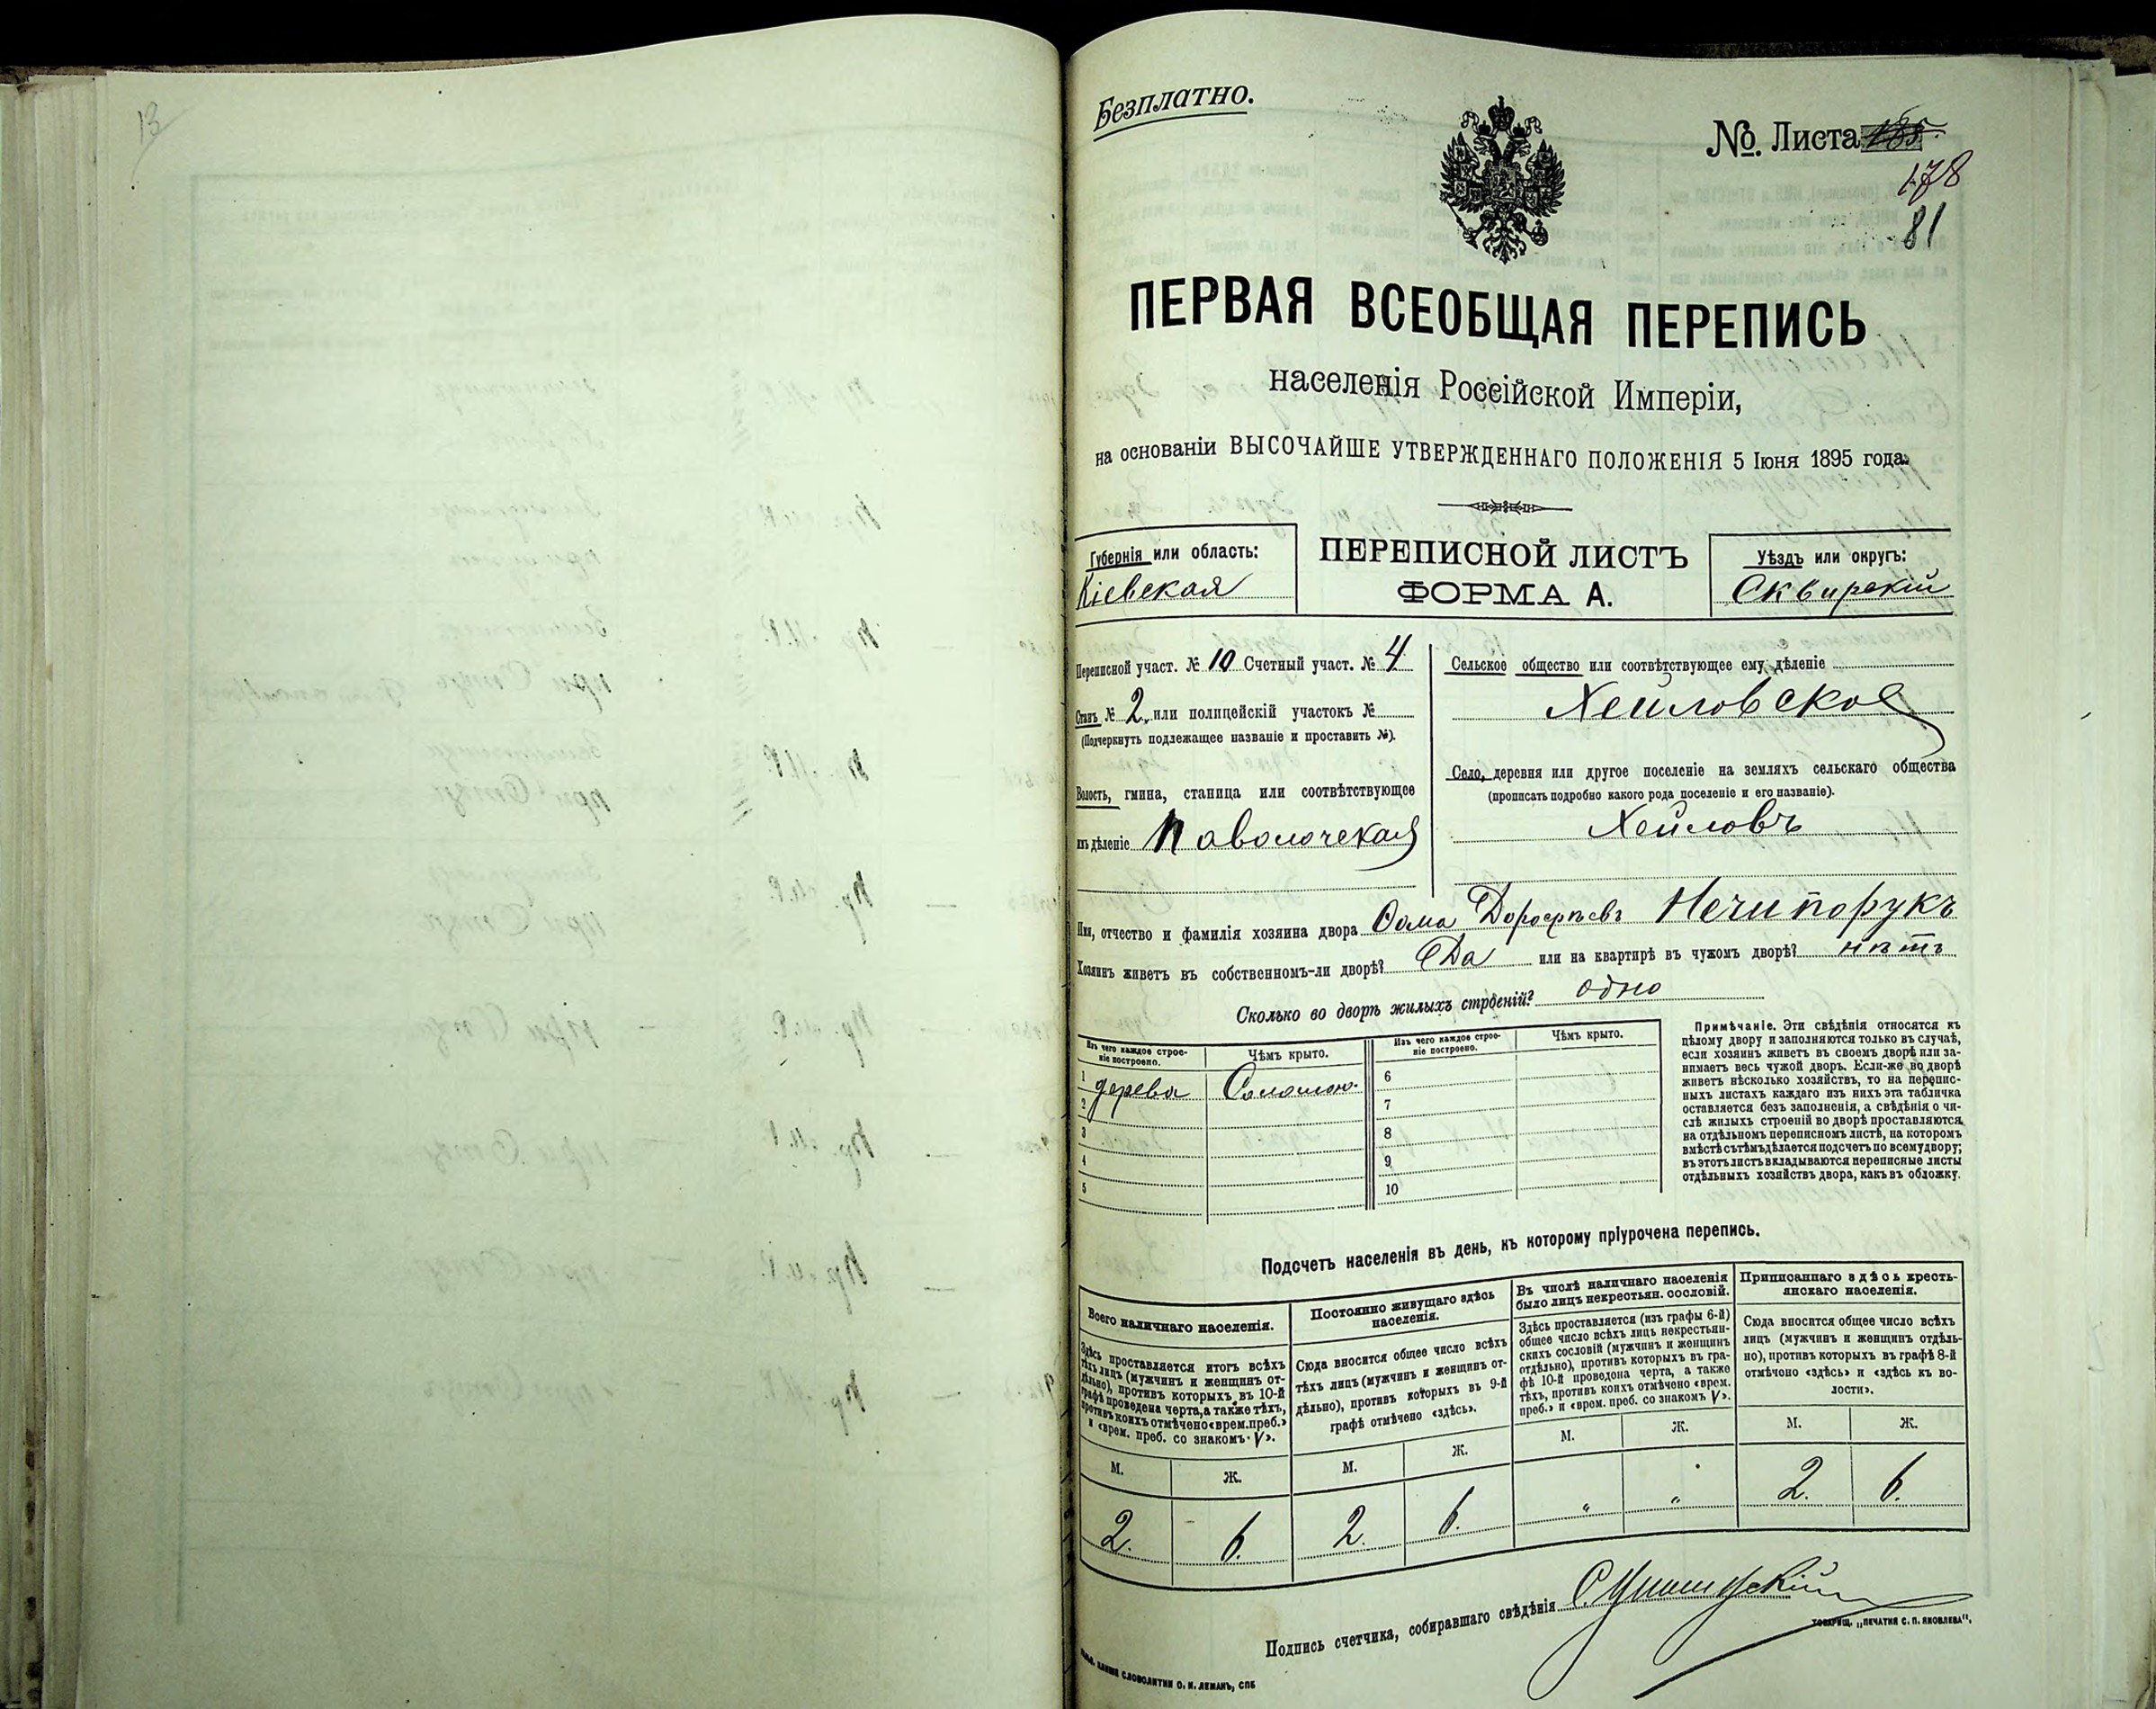 13
Безплатно.
№ Листа
178
81
ПЕРВАЯ ВСЕОБЩАЯ ПЕРЕПИСЬ
населенія Россійской Имперіи,
на основаніи ВЫСОЧАЙШЕ УТВЕРЖДЕННАГО ПОЛОЖЕНІЯ 5 Іюня 1895 года.
Губернія или область:
Кіевская
ПЕРЕПИСНОЙ ЛИСТЪ
ФОРМА А.
Уѣздъ или округъ:
Сквирскій
Переписной участ. № 10 Счетный участ. № 4
Станъ № 2, или полицейскій участокъ №
(Подчеркнуть подлежащее названіе и проставить №).
Волость, гмина, станица или соотвѣтствующее
имъ дѣленіе Паволочская
Сельское общество или соотвѣтствующее ему дѣленіе
Хейловское
Село, деревня или другое поселеніе на земляхъ сельскаго общества
(прописать подробно какого рода поселеніе и его названіе).
Хейловъ
Имя, отчество и фамилія хозяина двора Сама Дорофѣевъ Нечипорукъ
Хозяинъ живетъ въ собственномъ-ли дворѣ? Да или на квартирѣ въ чужомъ дворѣ? нѣтъ
Сколько во дворѣ жилыхъ строеній? одно
Изъ чего каждое строе-
ніе построено.
Чѣмъ крыто.
Изъ чего каждое строе-
ніе построено.
Чѣмъ крыто.
1 дерева Соломою 6
2 7
3 8
4 9
5 10
Примѣчаніе. Эти свѣдѣнія относятся къ
цѣлому двору и заполняются только въ случаѣ,
если хозяинъ живетъ въ своемъ дворѣ или за-
нимаетъ весь чужой дворъ. Если-же во дворѣ
живетъ нѣсколько хозяйствъ, то на перепис-
ныхъ листахъ каждаго изъ нихъ эта табличка
оставляется безъ заполненія, а свѣдѣнія о чи-
слѣ жилыхъ строеній во дворѣ проставляются
на отдѣльномъ переписномъ листѣ, на которомъ
вмѣстѣ съ тѣмъ дѣлается подсчетъ по всему двору;
въ этотъ листъ вкладываются переписные листы
отдѣльныхъ хозяйствъ двора, какъ въ обложку.
Подсчетъ населенія въ день, къ которому пріурочена перепись.
Всего наличнаго населенія.
Здѣсь проставляется итогъ всѣхъ
тѣхъ лицъ (мужчинъ и женщинъ от-
дѣльно), противъ которыхъ въ 10-й
графѣ проведена черта, а также тѣхъ,
противъ коихъ отмѣчено «врем. преб.»
и «врем. преб. со знакомъ V».
Постоянно живущаго здѣсь
населенія.
Сюда вносится общее число всѣхъ
тѣхъ лицъ (мужчинъ и женщинъ от-
дѣльно), противъ которыхъ въ 9-й
графѣ отмѣчено «здѣсь».
Въ числѣ наличнаго населенія
было лицъ некрестьян. сословій.
Здѣсь проставляется (изъ графы 6-й)
общее число всѣхъ лицъ некрестьян-
скихъ сословій (мужчинъ и женщинъ
отдѣльно), противъ которыхъ въ гра-
фѣ 10-й проведена черта, а также
тѣхъ, противъ коихъ отмѣчено «врем.
преб.» и «врем. преб. со знакомъ V».
Приписаннаго здѣсь кресть-
янскаго населенія.
Сюда вносится общее число всѣхъ
лицъ (мужчинъ и женщинъ отдѣль-
но), противъ которыхъ въ графѣ 8-й
отмѣчено «здѣсь» и «здѣсь къ во-
лости».
М. Ж. М. Ж. М. Ж. М. Ж.
2. 6. 2. 6. „ „ 2. 6.
Подпись счетчика, собиравшаго свѣдѣнія
ТОВАРИЩ. „ПЕЧАТНЯ С. П. ЯКОВЛЕВА“.
КЛИШЕ СЛОВОЛИТНИ О. И. ЛЕМАНЪ, СПБ